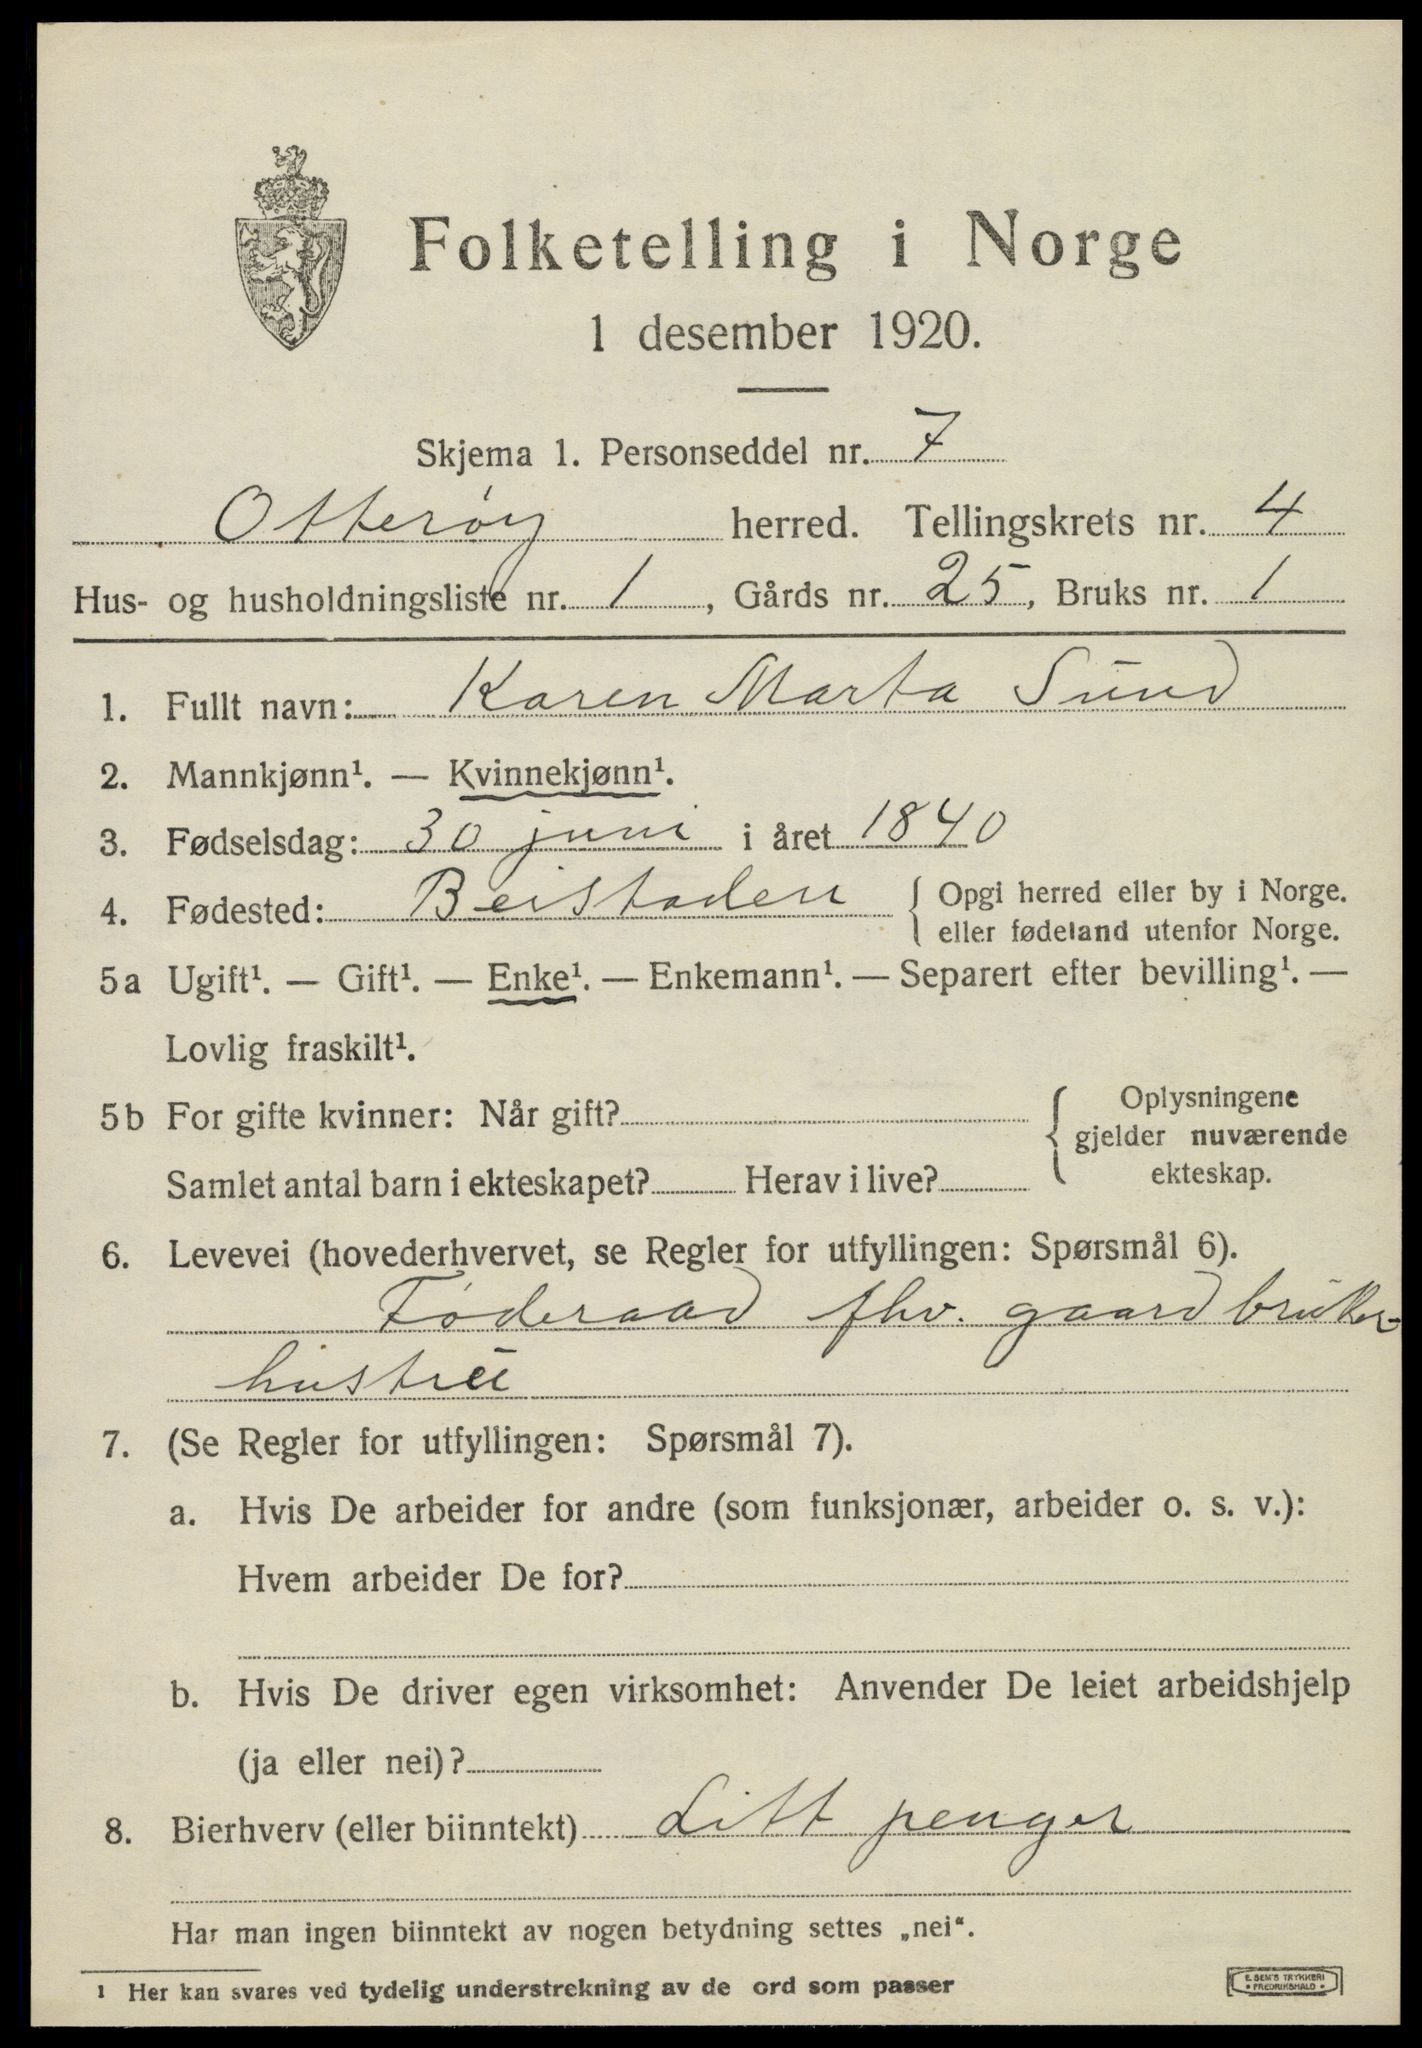 Folketelling i Norge
1 desember 1920.
Skjema 1. Personseddel nr. 7
Otterøy herred. Tellingskrets nr. 4
Hus- og husholdningsliste nr. 1, Gårds nr. 25, Bruks nr. 1
1. Fullt navn: Karen Marta Sund
2. Mannkjønn¹. — Kvinnekjønn¹.
3. Fødselsdag: 30 juni i året 1840
4. Fødested: Beistaden { Opgi herred eller by i Norge.
eller fødeland utenfor Norge.
5a Ugift¹. — Gift¹. — Enke¹. — Enkemann¹. — Separert efter bevilling¹. —
Lovlig fraskilt¹.
5b For gifte kvinner: Når gift? { Oplysningene
gjelder nuværende
Samlet antal barn i ekteskapet? Herav i live? ekteskap.
6. Levevei (hovederhvervet, se Regler for utfyllingen: Spørsmål 6).
Føderaad fhv. gaardbruker-
hustru
7. (Se Regler for utfyllingen: Spørsmål 7).
a. Hvis De arbeider for andre (som funksjonær, arbeider o. s. v.):
Hvem arbeider De for?
b. Hvis De driver egen virksomhet: Anvender De leiet arbeidshjelp
(ja eller nei)?
8. Bierhverv (eller biinntekt) Litt penger
Har man ingen biinntekt av nogen betydning settes „nei“.
1 Her kan svares ved tydelig understrekning av de ord som passer
E. SEM'S TRYKKERI
• FREDRIKSHALD •